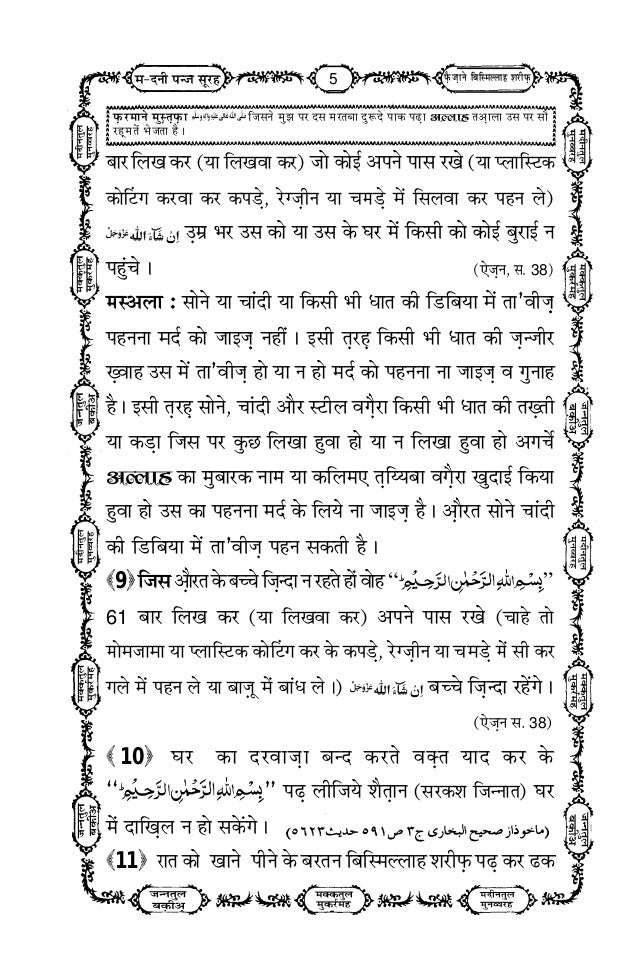 म-दनी पन्ज सूरह 5 फ़ैज़ाने बिस्मिल्लाह शरीफ़
फ़रमाने मुस्तफ़ा صلى الله تعالى عليه واله وسلم जिसने मुझ पर दस मरतबा दुरूदे पाक पढ़ा अल्लाह तआ़ला उस पर सौ
रह़मतें भेजता है ।
बार लिख कर (या लिखवा कर) जो कोई अपने पास रखे (या प्लास्टिक
कोटिंग करवा कर कपड़े, रेग्ज़ीन या चमड़े में सिलवा कर पहन ले)
اِنْ شَآءَ اللّٰه عَزَّوَجَلَّ उम्र भर उस को या उस के घर में किसी को कोई बुराई न
पहुंचे । (ऐज़न, स. 38)
मस्अला : सोने या चांदी या किसी भी धात की डिबिया में ता'वीज़
पहनना मर्द को जाइज़ नहीं । इसी त़रह़ किसी भी धात की ज़न्जीर
ख़्वाह उस में ता'वीज़ हो या न हो मर्द को पहनना ना जाइज़ व गुनाह
है । इसी त़रह़ सोने, चांदी और स्टील वग़ैरा किसी भी धात की तख़्ती
या कड़ा जिस पर कुछ लिखा हुवा हो या न लिखा हुवा हो अगर्चे
अल्लाह का मुबारक नाम या कलिमए त़य्यिबा वग़ैरा खुदाई किया
हुवा हो उस का पहनना मर्द के लिये ना जाइज़ है । औ़रत सोने चांदी
की डिबिया में ता'वीज़ पहन सकती है ।
﴾9﴿ जिस औ़रत के बच्चे ज़िन्दा न रहते हों वोह “بِسْمِ اللّٰهِ الرَّحْمٰنِ الرَّحِيْمِ”
61 बार लिख कर (या लिखवा कर) अपने पास रखे (चाहे तो
मोमजामा या प्लास्टिक कोटिंग कर के कपड़े, रेग्ज़ीन या चमड़े में सी कर
गले में पहन ले या बाज़ू में बांध ले ।) اِنْ شَآءَ اللّٰه عَزَّوَجَلَّ बच्चे ज़िन्दा रहेंगे ।
(ऐज़न स. 38)
﴾10﴿ घर का दरवाज़ा बन्द करते वक़्त याद कर के
“بِسْمِ اللّٰهِ الرَّحْمٰنِ الرَّحِيْمِ” पढ़ लीजिये शैत़ान (सरकश जिन्नात) घर
में दाख़िल न हो सकेंगे । (ماخوذ از صحيح البخاری ج٣ ص٥٩١ حديث٥٦٢٣)
﴾11﴿ रात को खाने पीने के बरतन बिस्मिल्लाह शरीफ़ पढ़ कर ढक
मदीनतुल मुनव्वरह
मक्कतुल मुकर्रमह
जन्नतुल बक़ीअ़
मदीनतुल मुनव्वरह
मक्कतुल मुकर्रमह
जन्नतुल बक़ीअ़
मदीनतुल मुनव्वरह
मक्कतुल मुकर्रमह
जन्नतुल बक़ीअ़
मदीनतुल मुनव्वरह
मक्कतुल मुकर्रमह
जन्नतुल बक़ीअ़
जन्नतुल बक़ीअ़ मक्कतुल मुकर्रमह मदीनतुल मुनव्वरह